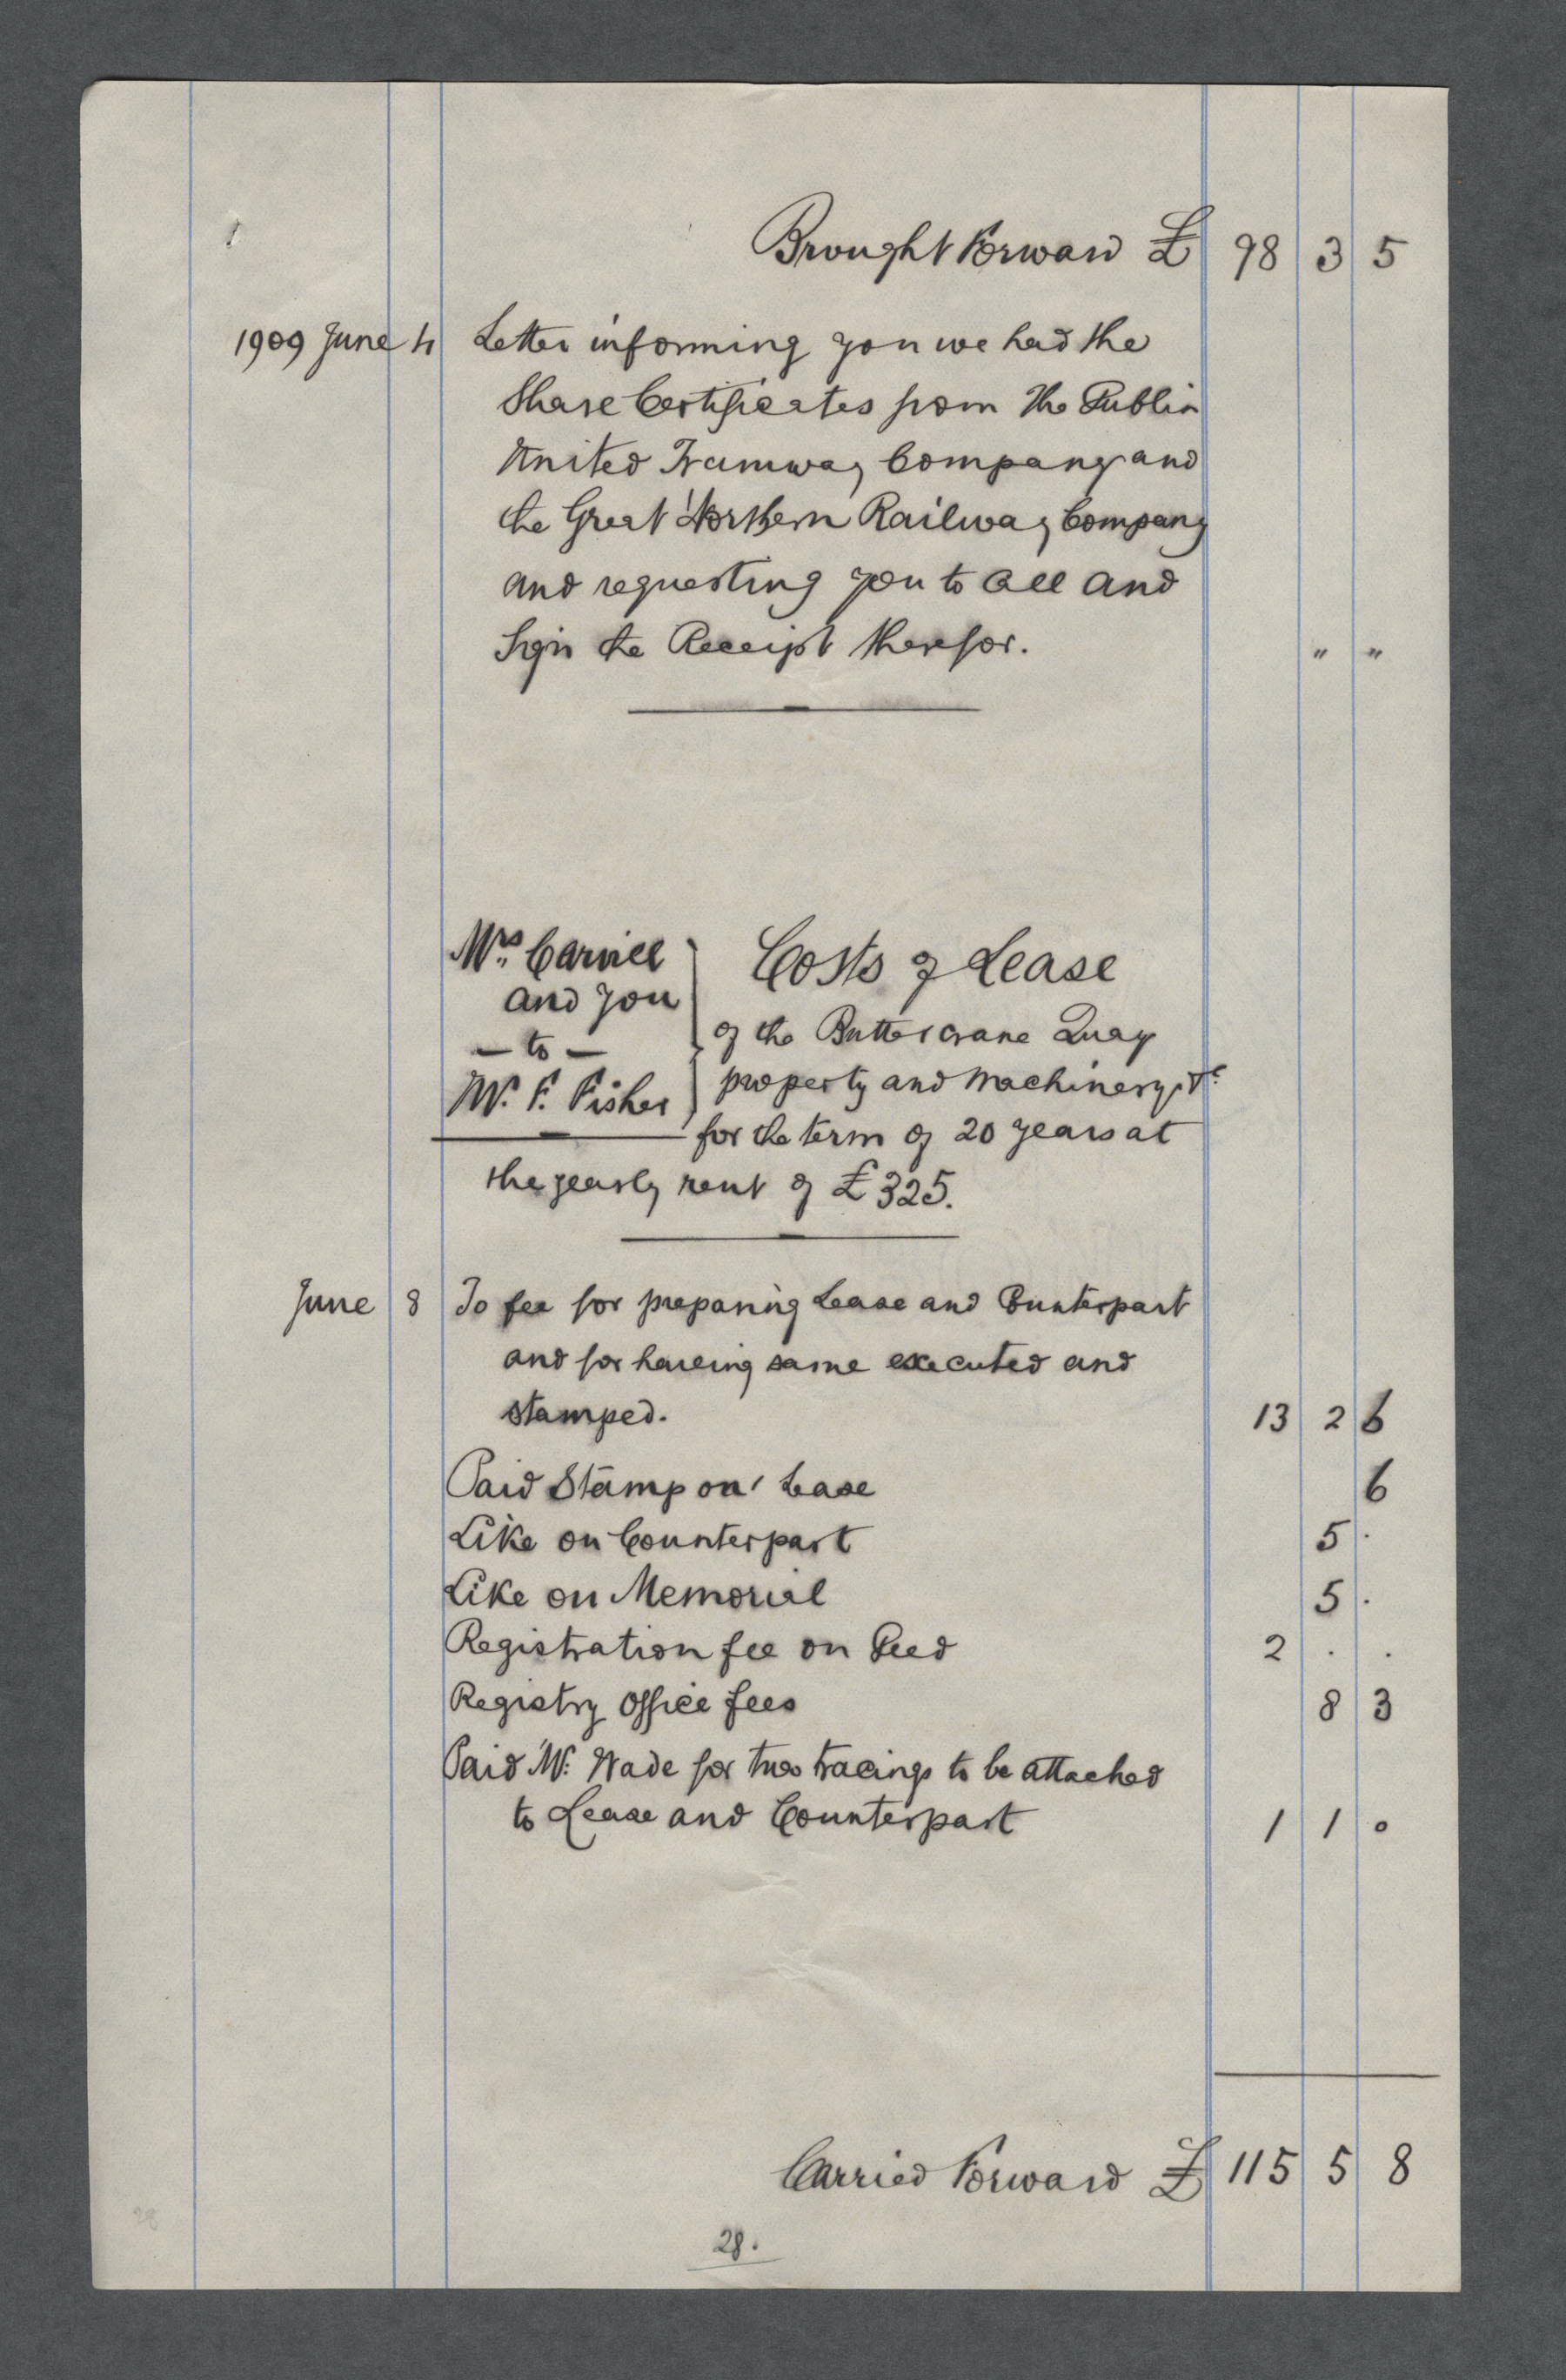 Brought Forward £ 98 3 5
1909 June 4 Letter informing you we had the
Share Certificates from The Dublin
United Tramway Company and
the Great Northern Railway Company
and requesting you to call and
Sign the Receipt therefor. " "
Mrs. Carvill Costs of Lease
and you
of the Buttercrane Quay
— to —
property and machinery &c
Mr. F. Fisher
for the term of 20 years at
the yearly rent of £325.
June 8 To fee for preparing Lease and Counterpart
and for having same executed and
stamped. 13 2 6
Paid Stamp on Lease 6
Like on Counterpart 5 .
Like on Memorial 5 .
Registration fee on Deed 2 . .
Registry Office fees 8 3
Paid Mr. Wade for two tracings to be attached
to Lease and Counterpart 1 1 0
Carried Forward £ 115 5 8
28.
28